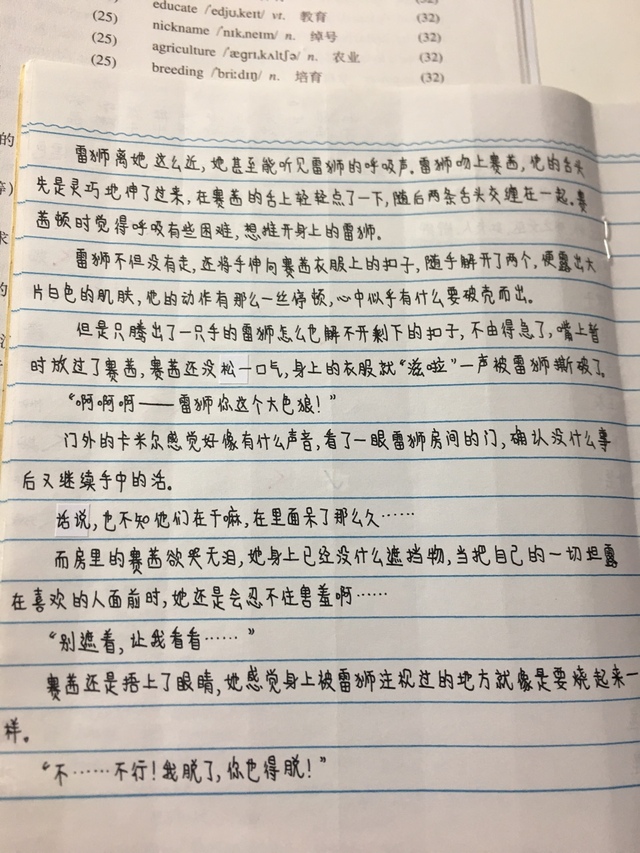 (25)
(25)
(25)
educate /ˈedjʊˌkeɪt/ vt. 教育
nickname /ˈnɪkˌneɪm/ n. 绰号 (32)
agriculture /ˈæɡrɪˌkʌltʃə/ n. 农业 (32)
breeding /ˈbriːdɪŋ/ n. 培育 (32)
雷狮离她这么近，她甚至能听见雷狮的呼吸声。雷狮吻上赛茜，他的舌头
先是灵巧地伸了过来，在赛茜的舌上轻轻点了一下，随后两条舌头交缠在一起。赛
茜顿时觉得呼吸有些困难，想推开身上的雷狮。
雷狮不但没有走，还将手伸向赛茜衣服上的扣子，随手解开了两个，便露出大
片白色的肌肤，他的动作有那么一丝停顿，心中似乎有什么要被壳而出。
但是只腾出了一只手的雷狮怎么也解不开剩下的扣子，不由得急了，嘴上暂
时放过了赛茜，赛茜还没松一口气，身上的衣服就“滋啦”一声被雷狮撕破了。
“啊啊啊——雷狮你这个大色狼！”
门外的卡米尔感觉好像有什么声音，看了一眼雷狮房间的门，确认没什么事
后又继续手中的活。
话说，也不知他们在干嘛，在里面呆了那么久……
而房里的赛茜欲哭无泪，她身上已经没什么遮挡物，当把自己的一切坦露
在喜欢的人面前时，她还是会忍不住害羞啊……
“别遮着，让我看看……”
赛茜还是捂上了眼睛，她感觉身上被雷狮注视过的地方就像是要烧起来一
样。
“不……不行！我脱了，你也得脱！”